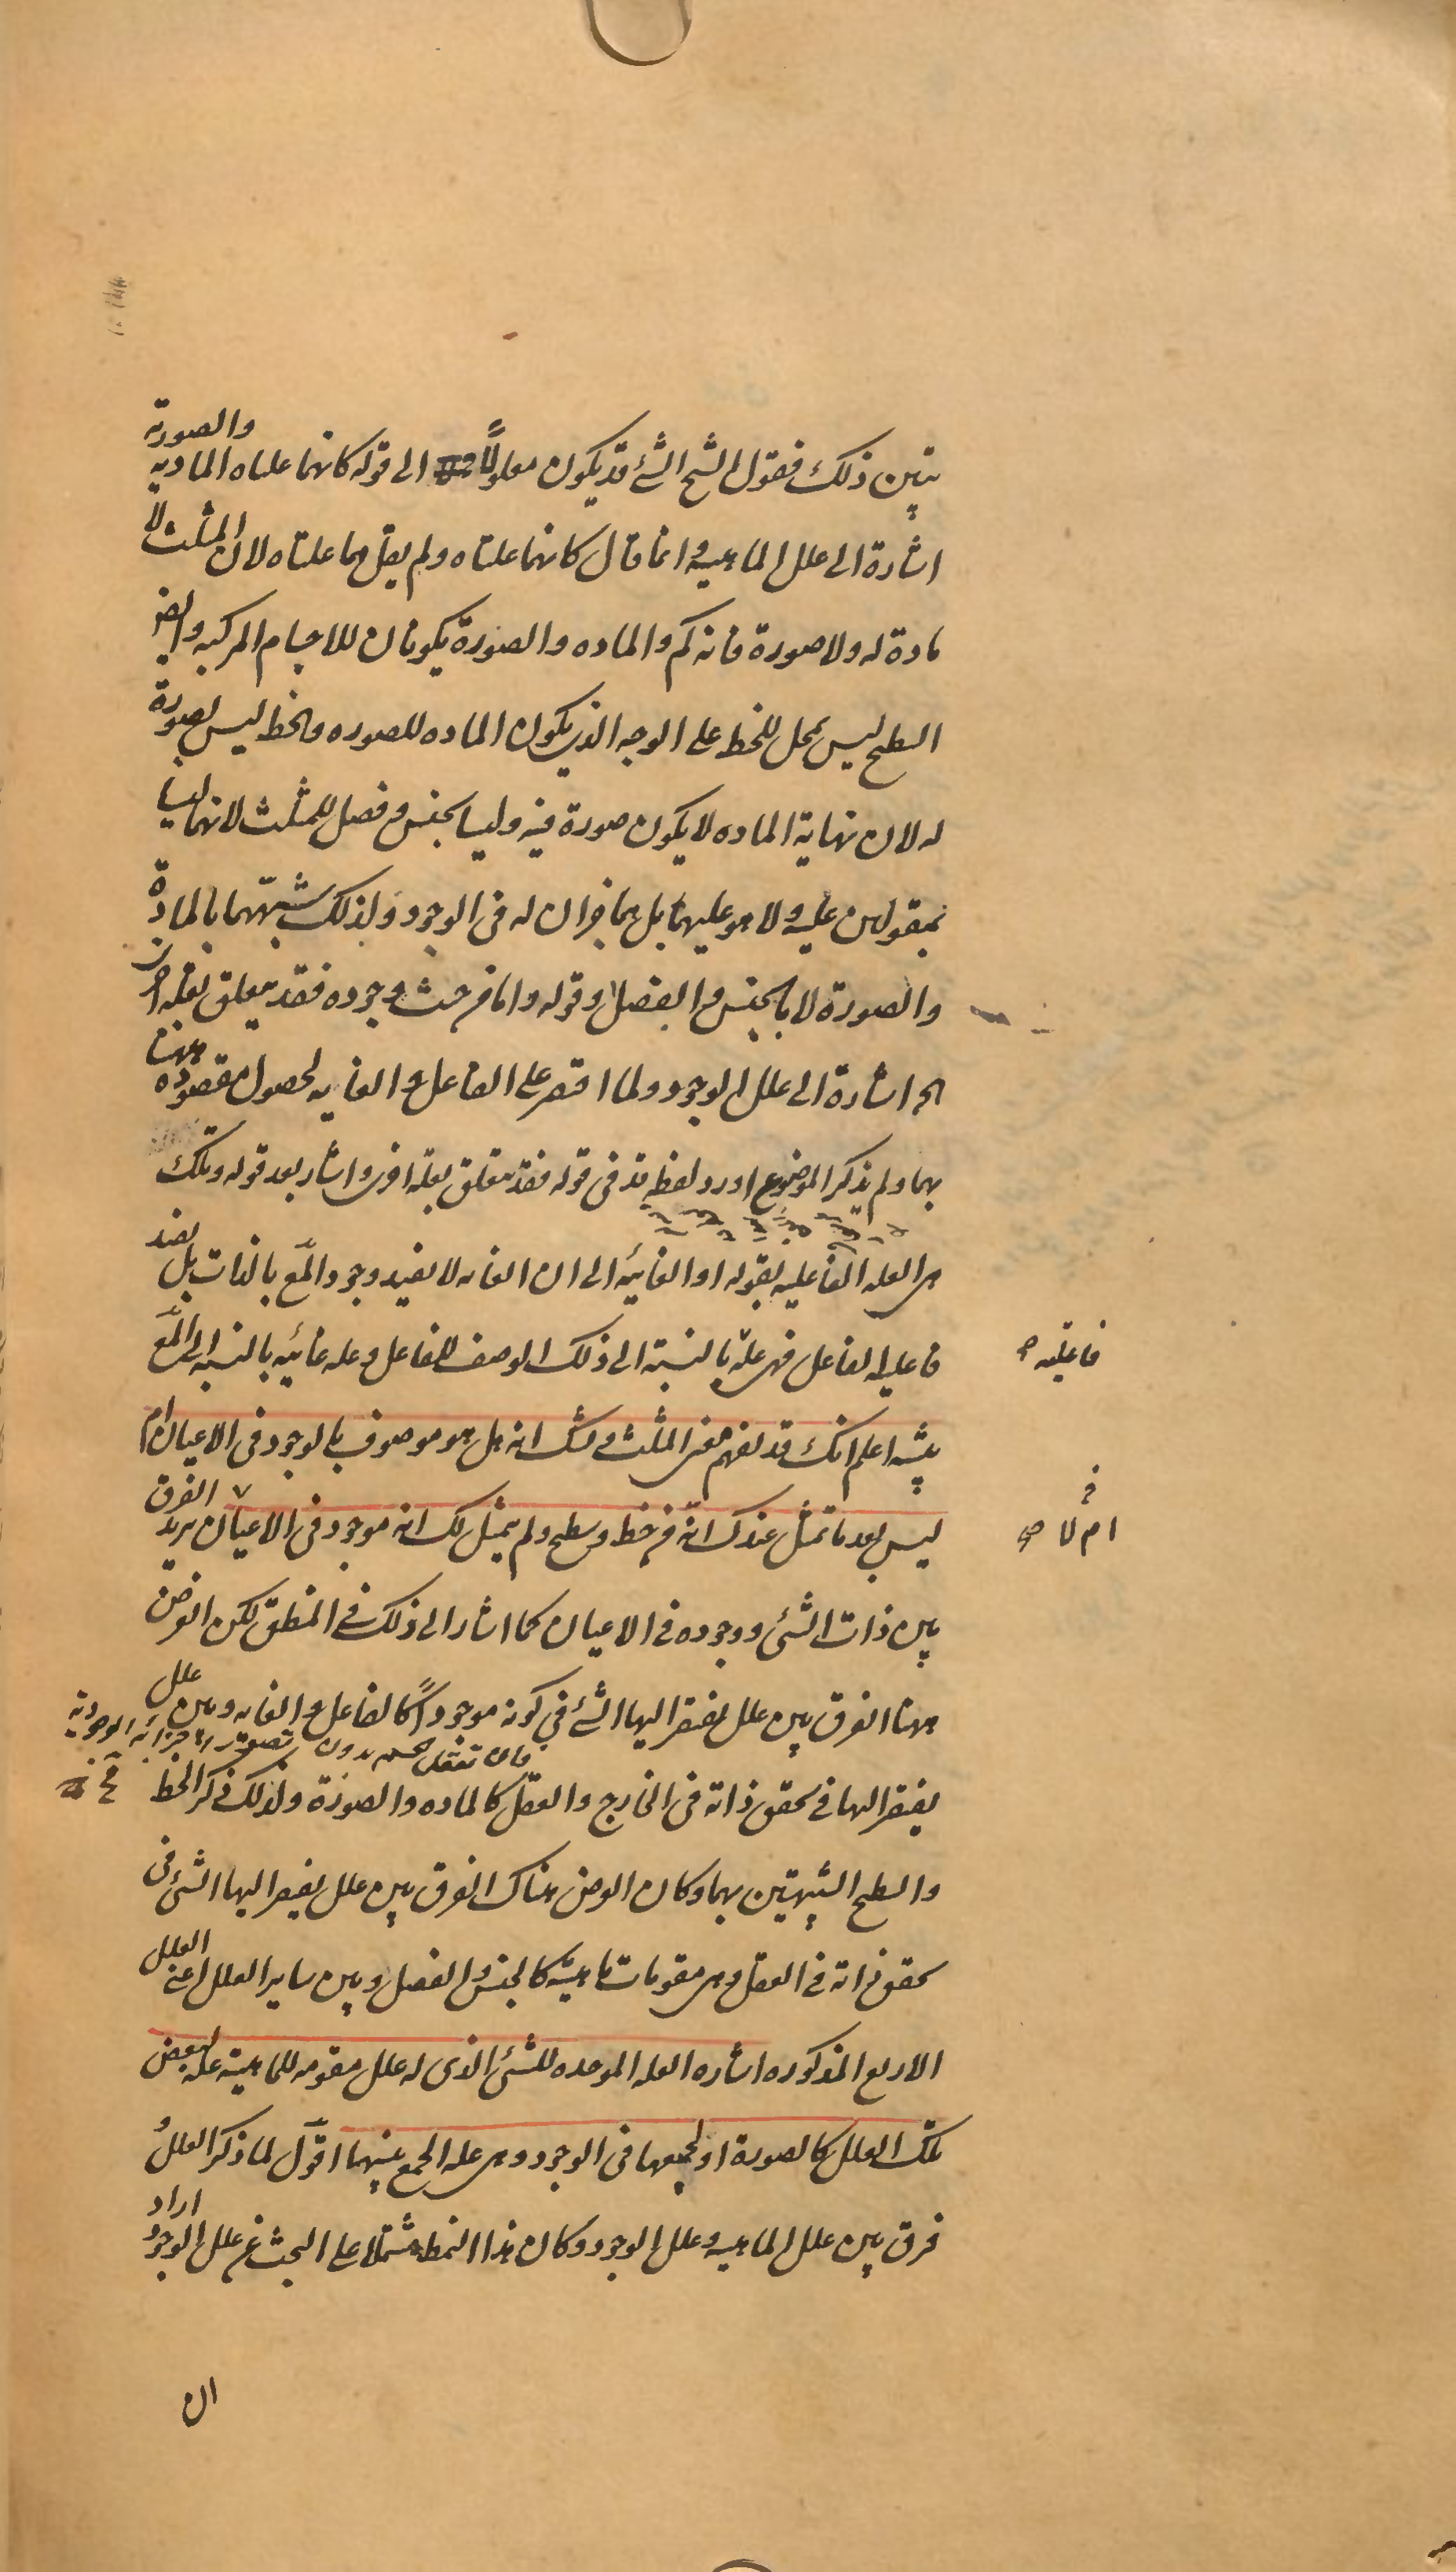 يتبين ذلك فقول الشيخ الشئ قد يكون معلولاً الى قوله كانهما علتاه الماديه والصوريه
اشارة الى علل الماهيه وانما قال كانهما علتاه ولم يقل هما علتاه لان المثلث لا
مادة له ولا صورة فانه كم والماده والصورة يكونان للاجسام المركبه وايضا
السطح ليس بمحل للخط على الوجه الذى يكون الماده للصوره والخط ليس بصورة
له لان نهاية الماده لا يكون صورة فيه وليسا بجنس وفصل للمثلث لانهما ليسا
بمقولين عليه ولا هو عليهما بل هما جزآن له فى الوجود ولذلك شبّههما بالمادة
والصورة لا بالجنس والفصل وقوله واما من حيث وجوده فقد يتعلق بعله اخرى
الخ اشارة الى علل الوجود ولما اقتصر على الفاعل والغايه لحصول مقصوده ههنا
بهما ولم يذكر الموضوع اورد لفظه قد فى قوله فقد يتعلق بعله اخرى واشار بعد قوله وتلك
هى العله الفاعليه بقوله او الغائيه الى ان الغايه لا يفيد وجود المع بالذات بل يفيد
فاعليه الفاعل فهى علة بالنسبة الى ذلك الوصف للفاعل وعله غائيه بالنسبه الى المع
فاعليه صح
تنبيه اعلم انك قد تفهم معنى المثلث وتشك انه هل هو موصوف بالوجود فى الاعيان ام
ليس بعد ما تمثل عندك انه من خط وسطح ولم يتمثل لك انه موجود فى الاعيان يريد الفرق
ام لا صح
بين ذات الشئ ووجوده فى الاعيان كما اشار الى ذلك فى المنطق لكن الغرض
ههنا الفرق بين علل يفتقر اليها الشئ فى كونه موجوداً كالفاعل والغايه وبين علل
يفتقر اليها فى تحقق ذاته فى الخارج والعقل كالماده والصورة ولذلك ذكر الخط
والسطح الشبيهتين بهما وكان الغرض هناك الفرق بين علل يفتقر اليها الشئ فى
تحقق ذاته فى العقل وهى مقومات ماهيته كالجنس والفصل وبين ساير العلل اعنى العلل
الاربع المذكوره اشاره العله الموجده للشئ الذى له علل مقومه للماهية علة لبعض
تلك العلل كالصورة او لجميعها فى الوجود وهى علة الجمع بينهما اقول لما ذكر العلل و
فرق بين علل الماهيه وعلل الوجود وكان هذا النمط مشتملا على البحث عن علل الوجود اراد
ان